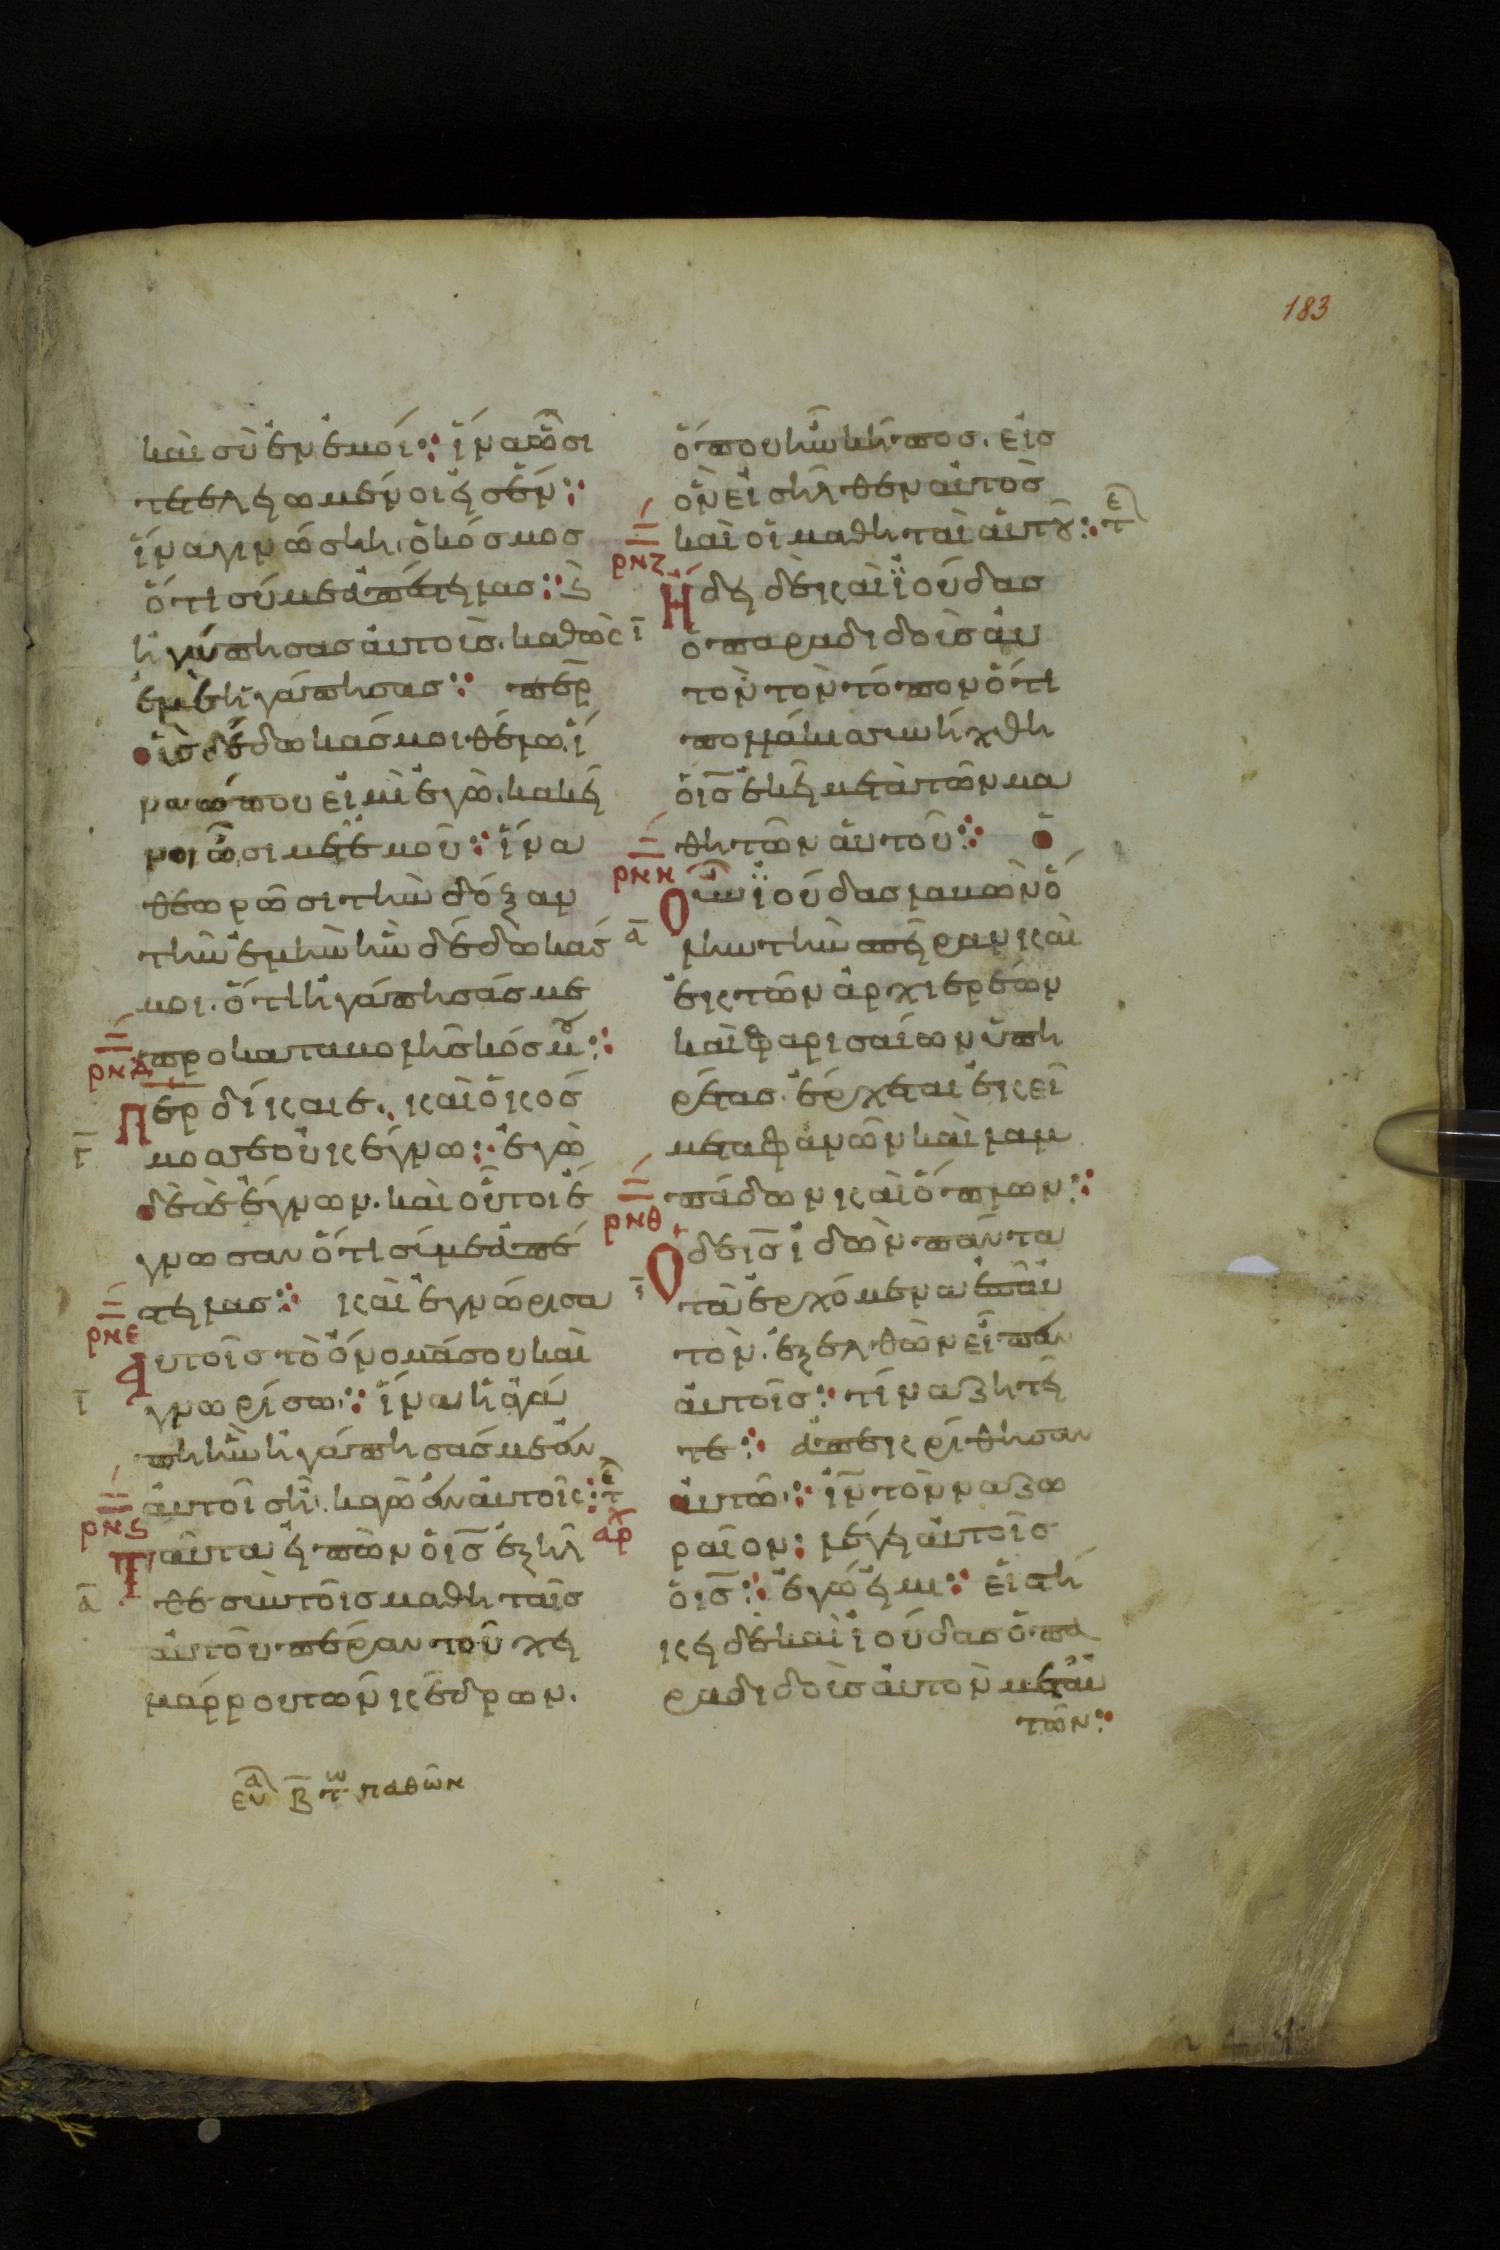 183
καὶ σὺ ἐν ἐμοί: ἵνα ὦσι
τετελειωμένοι εἰς ἕν:
ἵνα γινώσκη ὁ κόσμος
ὅτι σύ με ἀπέστειλας: ϗ
ἠγάπησας αὐτοὺς. καθὼς
ἐμὲ ἠγάπησας: περ
οὓς δέδωκάς μοι θέλω ἵ
να ὅπου εἰμὶ ἐγὼ. κακεῖ
νοι ὦσι μετ ἐμοῦ: ἵνα
θεωρῶσι τὴν δόξαν
τὴν ἐμὴν ἣν δέδωκάς
μοι. ὅτι ἠγάπησάς με
προ καταβολῆς κόσμου:
ρνδ
Περ δίκαιε. καὶ ὁ κόσ
γ
μος σε οὐκ ἔγνω: ἐγὼ
δὲ σὲ ἔγνων. καὶ οὗτοι ἔ
γνωσαν ὅτι σύ με ἀπέ
στειλας: καὶ ἐγνώρισα
ρνε
αὐτοῖς τὸ ὄνομά σου καὶ
ι
γνωρίσω: ἵνα ἡ ἀγά
πη ἣν ἠγάπησάς με ἐν
αὐτοῖς ἦ. κἀγὼ ἐν αὐτοῖς: τε
ρνϛ
αρχ
Ταῦτα εἰπὼν ὁ ις ἐξῆλ
α
θε σὺν τοῖς μαθηταῖς
αὐτοῦ πέραν τοῦ χει
μάρρου τῶν κέδρων.
ὅπου ἦν κῆπος. εἰς
ὃν εἰσῆλθεν αὐτὸς
καὶ οἱ μαθηταὶ αὐτοῦ: τε
ρνζ
Ηδει δὲ καὶ ἰούδας
ι
ὁ παραδιδοὺς αὐ
τὸν τὸν τόπον ὅτι
πολλάκις συνήχθη
ὁ ις ἐκεῖ μετὰ τῶν μα
θητῶν αὐτοῦ:
ρνη
Ὁ οὖν ἰούδας λαβὼν
α
τὴν σπεῖραν καὶ
ἐκ τῶν ἀρχιερέων
καὶ φαρισαίων ὑπη
ρέτας. ἔρχεται ἐκεῖ
μετα φανῶν καὶ λαμ
πάδων καὶ ὅπλων:
ρνθ
Ο δὲ ις ἰδὼν πάντα
ι
τὰ ἐρχόμενα ἐπ αὐ
τὸν. ἐξελθὼν εἶπεν
αὐτοῖς: τίνα ζητεῖ
τε: ἀπεκρίθησαν
αὐτῶ: ιν τὸν ναζω
ραῖον: λέγει αὐτοῖς
ὁ ις: ἐγώ εἰμι: εἱστή
κει δὲ καὶ ἰούδας ὁ πα
ραδιδοὺς αὐτὸν μετ αὐ
τῶν:
ευα β τω παθῶν